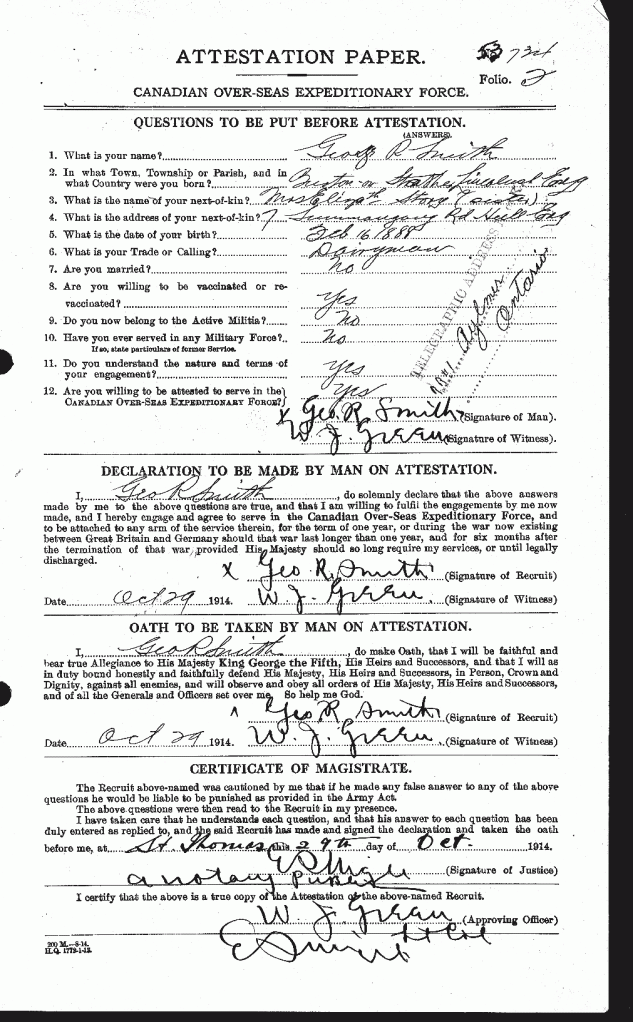 ATTESTATION PAPER.
No 53734
Folio. 2
CANADIAN OVER-SEAS EXPEDITIONARY FORCE.
QUESTIONS TO BE PUT BEFORE ATTESTATION.
(ANSWERS).
1. What is your name? George R Smith
2. In what Town, Township or Parish, and in
what Country were you born?
3. What is the name of your next-of-kin? Mrs Elizath Story (sister)
4. What is the address of your next-of-kin? 7 Rd Hull Eng
5. What is the date of your birth? Feb 16 1888
6. What is your Trade or Calling? Dairyman
7. Are you married? no
8. Are you willing to be vaccinated or re-
vaccinated? yes
9. Do you now belong to the Active Militia? no
10. Have you ever served in any Military Force? no
If so, state particulars of former Service.
11. Do you understand the nature and terms of
your engagement? yes
12. Are you willing to be attested to serve in the
CANADIAN OVER-SEAS EXPEDITIONARY FORCE? yes
TELEGRAPHIC ADDRESS
Aylmer
Ontario
x Geo. R. Smith (Signature of Man).
W. J. Green (Signature of Witness).
DECLARATION TO BE MADE BY MAN ON ATTESTATION.
I, Geo R Smith, do solemnly declare that the above answers
made by me to the above questions are true, and that I am willing to fulfil the engagements by me now
made, and I hereby engage and agree to serve in the Canadian Over-Seas Expeditionary Force, and
to be attached to any arm of the service therein, for the term of one year, or during the war now existing
between Great Britain and Germany should that war last longer than one year, and for six months after
the termination of that war provided His Majesty should so long require my services, or until legally
discharged.
x Geo R. Smith (Signature of Recruit)
Date Oct 29 1914. W. J. Green. (Signature of Witness)
OATH TO BE TAKEN BY MAN ON ATTESTATION.
I, Geo R Smith, do make Oath, that I will be faithful and
bear true Allegiance to His Majesty King George the Fifth, His Heirs and Successors, and that I will as
in duty bound honestly and faithfully defend His Majesty, His Heirs and Successors, in Person, Crown and
Dignity, against all enemies, and will observe and obey all orders of His Majesty, His Heirs and Successors,
and of all the Generals and Officers set over me. So help me God.
Geo R Smith (Signature of Recruit)
Date Oct 29 1914. W. J. Green. (Signature of Witness)
CERTIFICATE OF MAGISTRATE.
The Recruit above-named was cautioned by me that if he made any false answer to any of the above
questions he would be liable to be punished as provided in the Army Act.
The above questions were then read to the Recruit in my presence.
I have taken care that he understands each question, and that his answer to each question has been
duly entered as replied to, and the said Recruit has made and signed the declaration and taken the oath
before me, at St. Thomas this 29th day of Oct. 1914.
(Signature of Justice)
a notary Public
I certify that the above is a true copy of the Attestation of the above-named Recruit.
W. J. Green (Approving Officer)
200 M.—8-14.
H.Q. 1772-1-13.